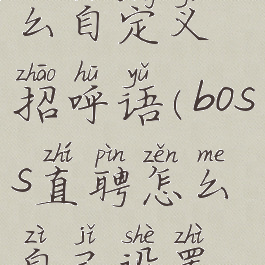 么自定义
zhāo hū yǔ
招呼语(bos
zhí pìn zěn me
s直聘怎么
zì jǐ shè zhì
自己设置